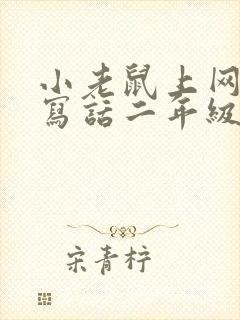 小老鼠上网
寫話二年級
宋青柠